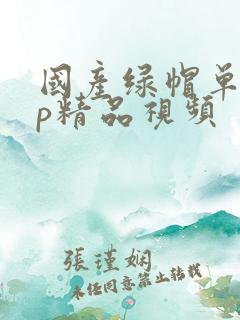 國產綠帽單
p精品視頻
張瑾娴
未任同意禁止转载